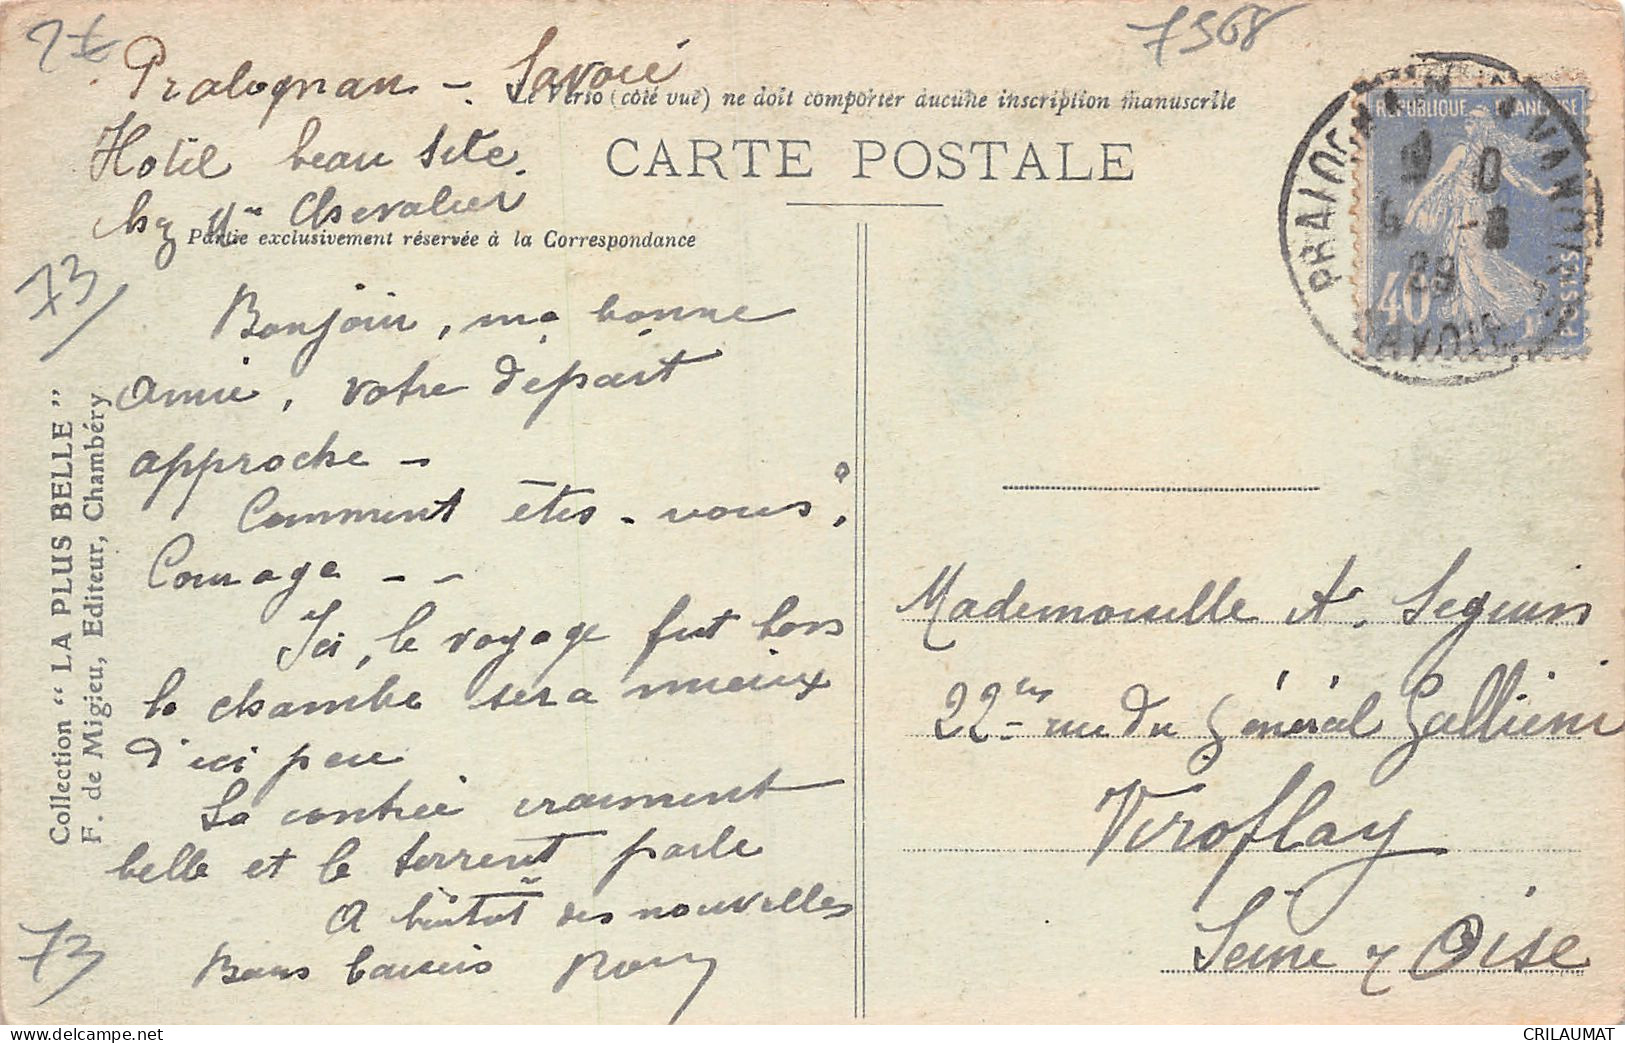 7368
Pralognan - Savoie
Le Verso (côté vue) ne doit comporter aucune inscription manuscrite
Hotel beau site.
chez Mme Chevalier
CARTE POSTALE
Partie exclusivement réservée à la Correspondance
73
Bonjour, ma bonne
amie, votre départ
approche -
Comment êtes-vous?
Courage - -
Ici, le voyage fut bon
la chambre sera mieux
d'ici peu
La contrée vraiment
belle et le torrent parle
A bientôt des nouvelles
Bons baisers
73
Collection "LA PLUS BELLE"
F. de Migieu, Editeur, Chambéry
REPUBLIQUE FRANÇAISE
40c
POSTES
PRALOGNAN
SAVOIE
Mademoiselle A. Seguin
22 rue du Général Gallieni
Viroflay
Seine & Oise
www.delcampe.net
CRILAUMAT